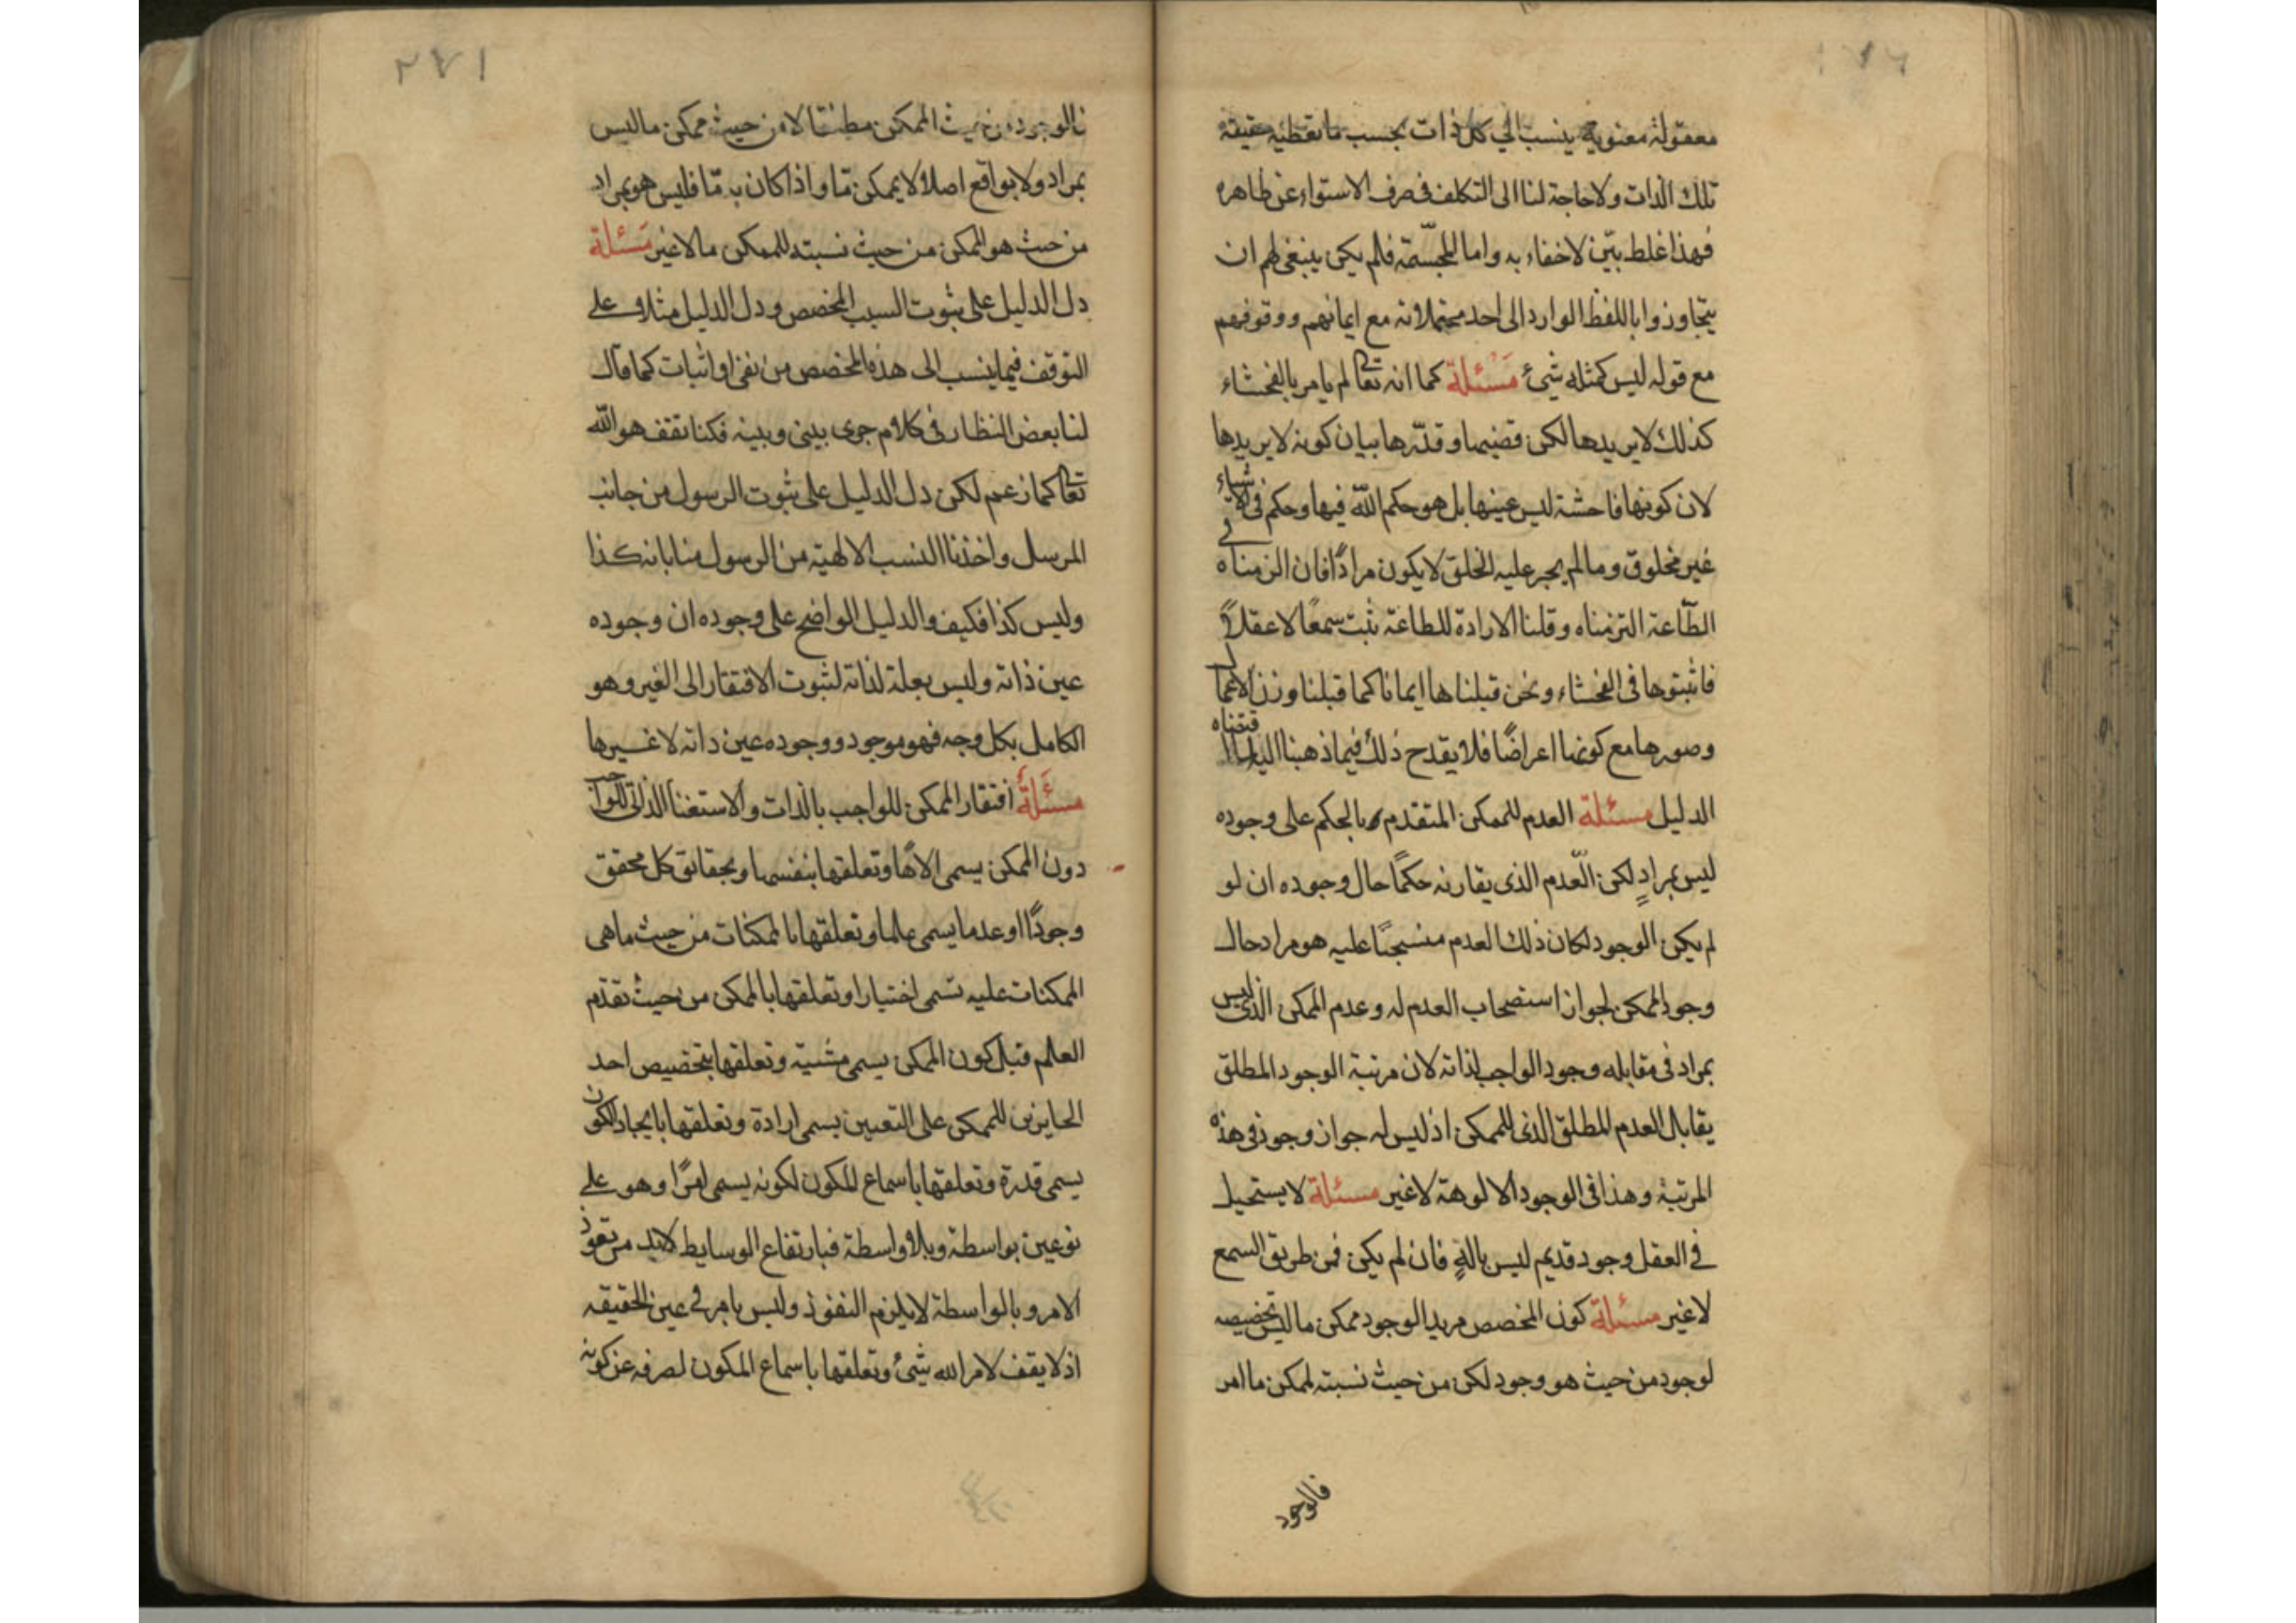 معقولة معنوية ينسب الي كل ذات بحسب ما تعطيه حقيقة
تلك الذات ولا حاجة لنا الى التكلف في صرف الاستواء عن ظاهره
فهذا غلط بيّن لا خفاء به واما المجسّمة فلم يكن ينبغي لهم ان
يتجاوزوا باللفظ الوارد الى احد محتملاته مع ايمانهم ووقوفهم
مع قوله ليس كمثله شئ مَسْئلة كما انه تعالى لم يامر بالفحشاء
كذلك لا يريدها لكن قضيها وقدّرها بيان كونه لا يريدها
لان كونها فاحشة ليس عينها بل هو حكم الله فيها وحكم في الاشياء
غير مخلوق وما لم يجر عليه الخلق لا يكون مرادًا فان الزمناه في
الطّاعة التزمناه وقلنا الارادة للطاعة ثبت سمعًا لا عقلاً
فاثبتوها في الفحشاء ونحن قبلناها ايمانا كما قبلنا وزن الاعمال
وصورها مع كونها اعراضًا فلا يقدح ذلك فيما ذهبنا اليه لما اقتضاه
الدليل مسئلة العدم للممكن المتقدم بالحكم على وجوده
ليس بمرادٍ لكن العّدم الذى يقارنه حكمًا حال وجوده ان لو
لم يكن الوجود لكان ذلك العدم منسحبًا عليه هو مراد حال
وجود الممكن لجواز استصحاب العدم له وعدم الممكن الذى ليس
بمراد في مقابله وجود الواجب لذاته لان مرتبة الوجود المطلق
يقابل العدم المطلق الذى للممكن اذ ليس له جواز وجود في هذه
المرتبة وهذا في الوجود الالوهة لا غير مسئلة لا يستحيل
في العقل وجود قديم ليس بالهٍ فان لم يكن فمن طريق السمع
لا غير مسئلة كون المخصص مريدا لوجود ممكن ما ليس تخصيصه
لوجود من حيث هو وجود لكن من حيث نسبته لممكن ما امر
فالوجود
٢٧١
فالوجود من حيث الممكن مطلقا لا من حيث ممكن ما ليس
بمراد ولا بواقع اصلا لا بممكن مّا واذا كان به مّا فليس هو بمراد
من حيث هو الممكن من حيث نسبته للممكن ما لا غير مَسْئلة
دل الدليل على ثبوت السبب المخصص ودل الدليل مثلا على
التوقف فيما ينسب الى هذه المخصص من نفي او اثبات كما قال
لنا بعض النظار في كلام جرى بيني وبينه فكنا نقف هو الله
تعالى كما زعم لكن دل الدليل على ثبوت الرسول من جانب
المرسل واخذنا النسب الالهية من الرسول منا بانه كذا
وليس كذا فكيف والدليل الواضح على وجوده ان وجوده
عين ذاته وليس بعلة لذاته لثبوت الافتقار الى الغير وهو
الكامل بكل وجه فهو موجود ووجوده عين ذاته لا غيرها
مسئلة افتقار الممكن للواجب بالذات والاستغنا الذاتي للواجب
دون الممكن يسمى الاهًا وتعلقها بنفسها وبحقائق كل محقق
وجودًا او عدما يسمى علما وتعلقها بالممكنات من حيث ما هي
الممكنات عليه تسمى اختيارا وتعلقها بالممكن من حيث تقدم
العلم قبل كون الممكن يسمى مشية وتعلقها بتخصيص احد
الجايزين للممكن على التعيين يسمى ارادة وتعلقها بايجاد الكون
يسمى قدرة وتعلقها باسماع المكون لكونه يسمى امرًا وهو على
نوعين بواسطة وبلا واسطة فبارتفاع الوسايط لابد من نفوذ
الامر وبالواسطة لا يلزم النفوذ وليس بامر في عين الحقيقه
اذ لا يقف لامر الله شئ وتعلقها باسماع المكون لصرفه عن كونه